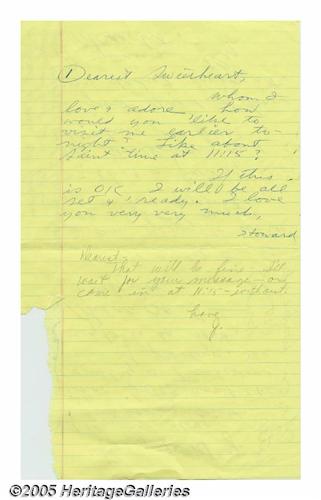 1 Dearest Sweetheart,
Whom I
love & adore how
would you like to
visit me earlier to-
night? Like about
time at 11:15?
If this
is OK I will be all
set & ready. I love
you very very much,
Howard
Dearest,
That will be fine. I'll
wait for your message - or
come in at 11:15 - without.
Love,
J.
©2005 HeritageGalleries